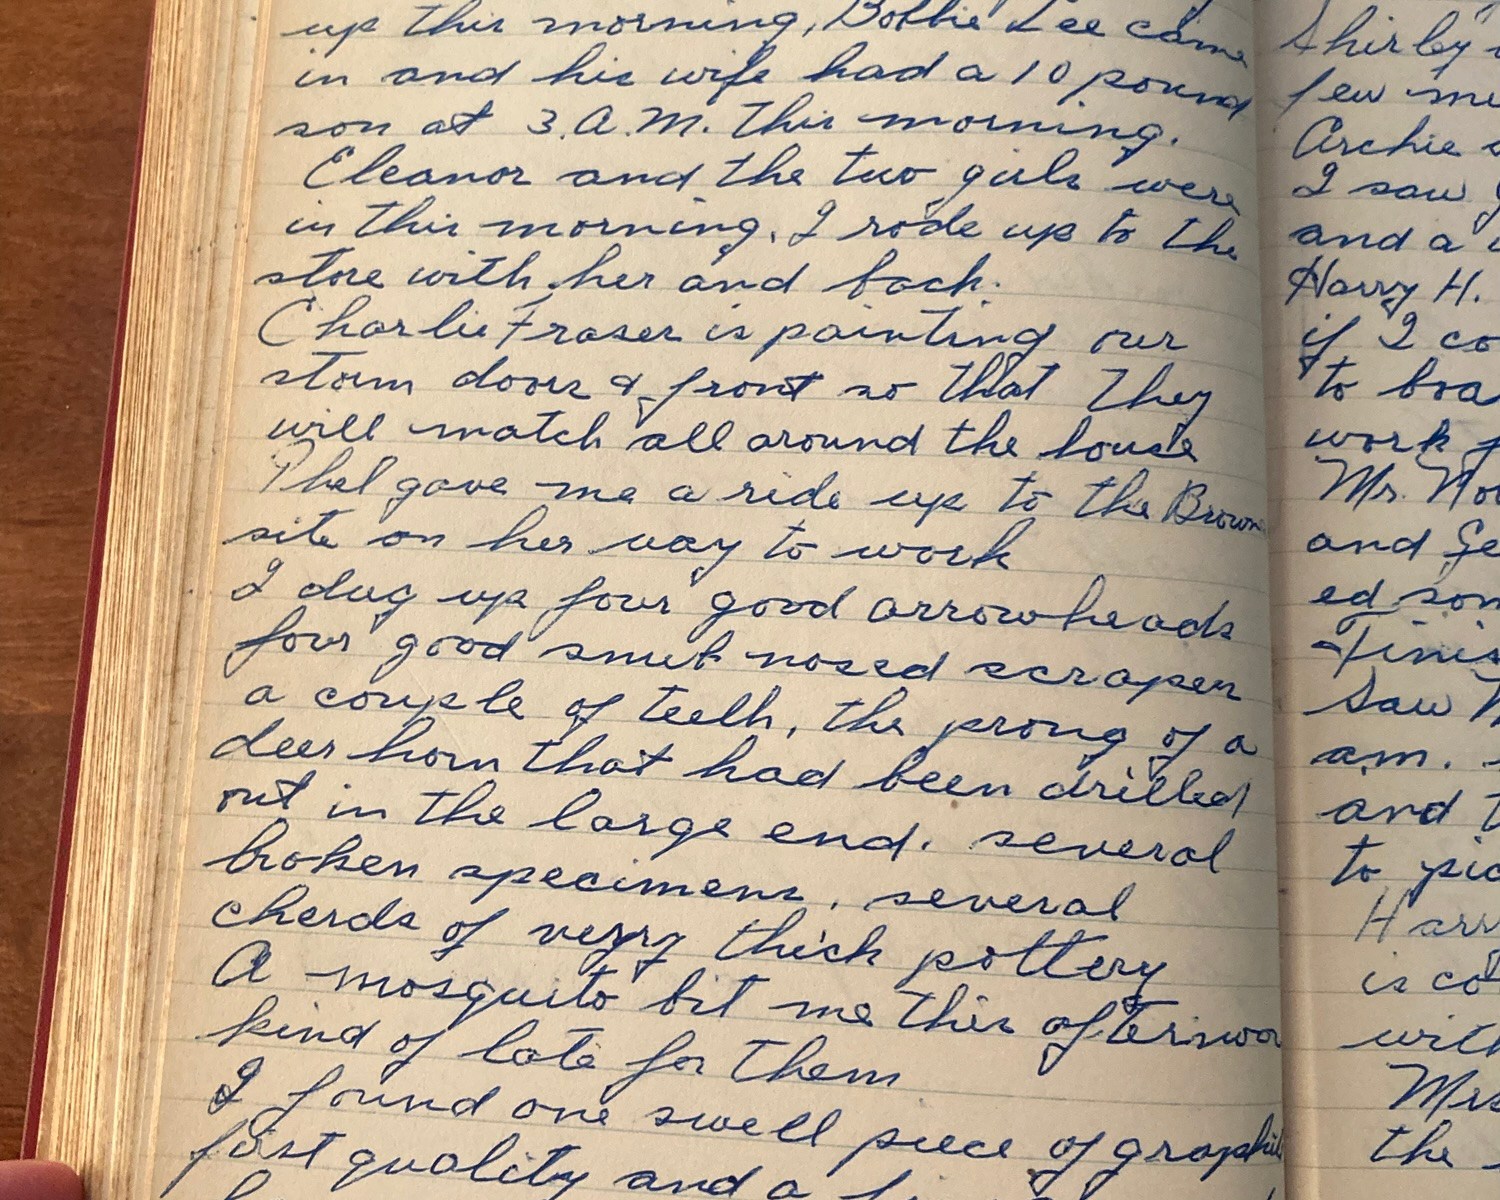 up this morning, Bobbie Lee came
in and his wife had a 10 pound
son at 3.A.M. this morning.
Eleanor and the two girls were
in this morning. I rode up to the
store with her and back.
Charlie Fraser is painting our
storm doors & front so that they
will match all around the house
Phel gave me a ride up to the Brown
site on her way to work
I dug up four good arrowheads
four good snub nosed scrapers
a couple of teeth, the prong of a
deer horn that had been drilled
out in the large end. several
broken specimens, several
cherds of very thick pottery
A mosquito bit me this afternoon
kind of late for them
I found one swell piece of graphite
first quality and a
Shirley
few
Archie
I saw
and a
Harry H.
if I
to
work
Mr.
and
ed
Saw
am.
and
to
Harry
is
with
Mrs
the